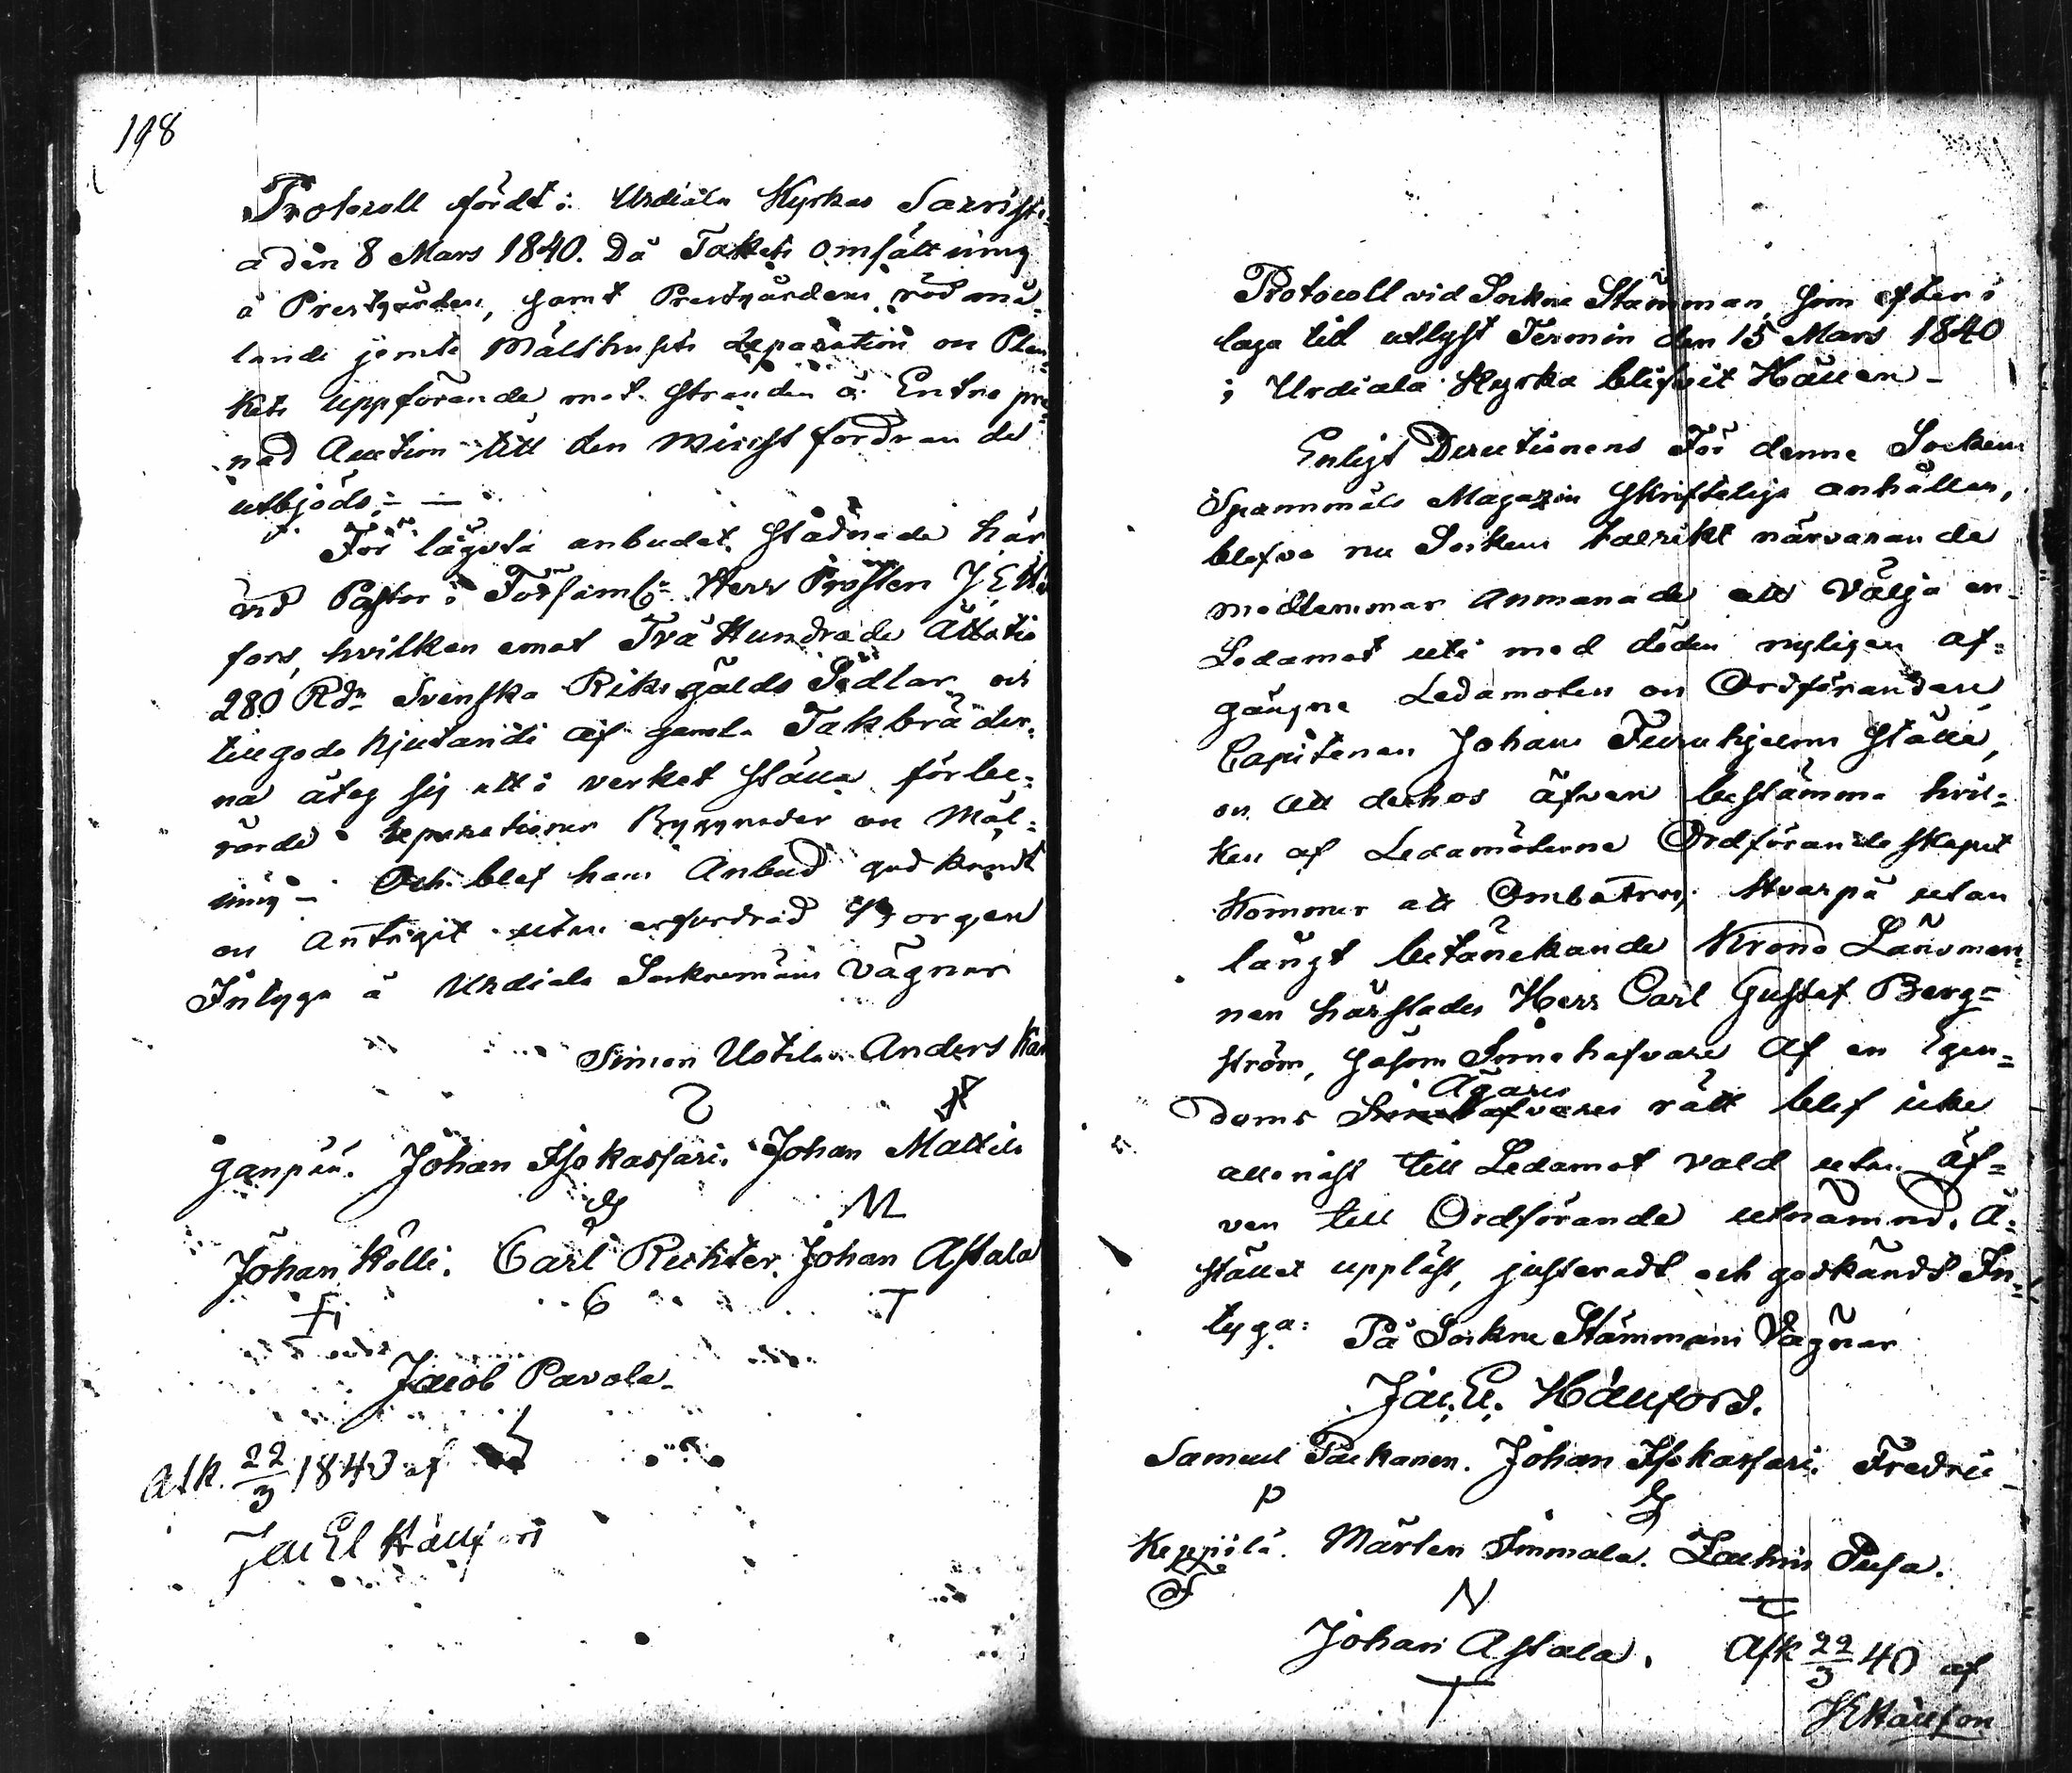 198
Protocoll fördt i Urdiala Kyrkas Sacristi=
a den 8 Mars 1840. Då Takets omsättning
å Prestgården, samt Prestgårdens rödmå=
lande jemte Mälthusets reparation och Plan=
kets uppförande mot stranden å Entrepre=
nad Auction till den minst fordrande
utbjöds. —
För lägsta anbudet stadnade här=
vid Pastor i Församl:n Herr Prosten J. E. Hä
fors, hvilken emot Två Hundrade Åttatio
280 Rdr Svenska Riksgälds Sedlar och
tillgodo njutande af gamla Takbräder=
na åtog sig att i verket ställa förbe=
rörde reparationer Byggnader och Mål=
ning — Och blef hans Anbud godkändt
och Antagit utan erfordrad Borgen
Intyga å Urdiala Sockenmäns vägnar
Simon Uotila. Anders Kan
ganpää. Johan Isokarsari. Johan Mattila
M
Johan Kölli. Carl Richter. Johan Astala
T
Jacob Pavola.
Afk. 22/3 1840 af
Jac El Hällfors
Protocoll vid Sockne Stämman, som efter i
laga tid utlyst Termin den 15 Mars 1840
i Urdiala Kyrka blifvit Hållen —
Enligt Directionens För denne Sockens
Spannmåls Magazin skrifteliga anhållan,
blefvo nu Sockens talrikt närvarande
medlemmar Anmanade att Välja en
Ledamot uti med döden nyligen af=
gångne Ledamoten och Ordföranden
Capitenen Johan Furuhjelms ställe,
och att derhos äfven bestämma hvil=
ken af Ledamöterne Ordförandeskapet
kommer att Ombetros; Hvarpå utan
långt betänckande Krono Länsman=
nen härstädes Herr Carl Gustaf Berg=
ström, såsom Innehafvare af en Egen=
doms Innehafvares Ägares rätt blef icke
allenast till Ledamot vald utan äf=
ven till Ordförande utnämnd. Å=
stället uppläst, justeradt och godkändt In=
tyga: På Sockne Stämmans Vägnar
Jac. El. Hällfors.
Samuel Packanen. Johan Isokarsari. Fredric
P
Keppilä. Mårten Immala. Zachris Pusa.
N
Johan Astala. Afk 22/3 40 af
T
JEHällfors